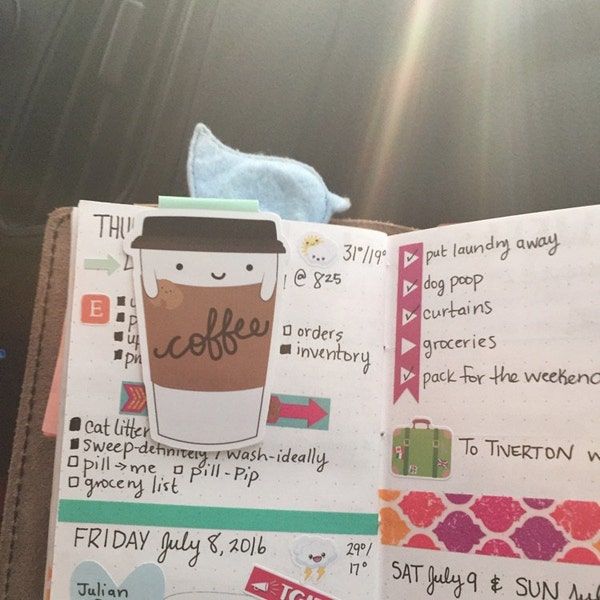 THU
31°/19°
@ 825
E
coffee
orders
inventory
cat litter
sweep-definitely / wash-ideally
pill → me pill - Pip
grocery list
FRIDAY July 8, 2016
29°/
17°
Julian
TGIF
put laundry away
dog poop
curtains
groceries
pack for the weekend
TO TIVERTON W
SAT July 9 & SUN Jul